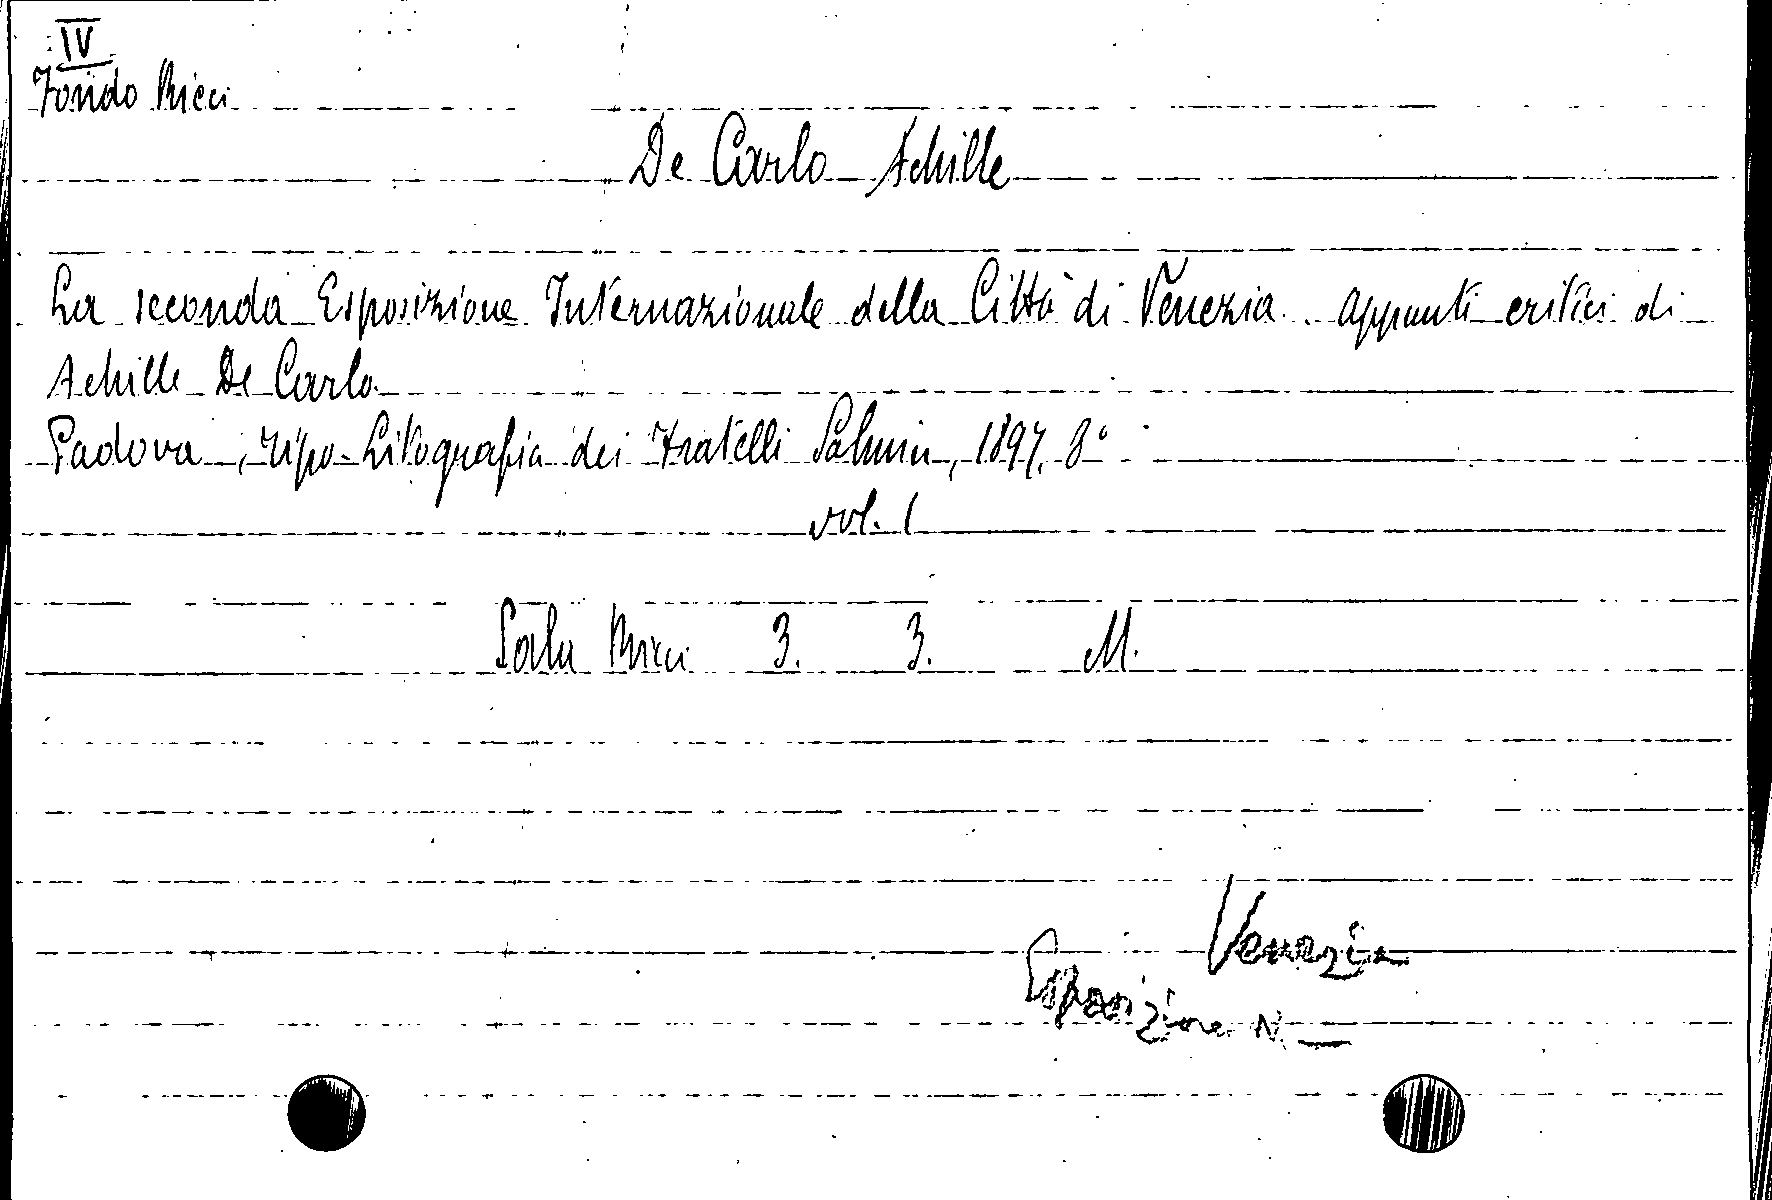 IV
Fondo Ricci
De Carlo Achille
La seconda Esposizione Internazionale della Città di Venezia. Appunti critici di
Achille De Carlo.
Padova, Tipo-Litografia dei Fratelli Salmin, 1897, 8°
vol. 1
Sala Ricci 3. 3. M.
Venezia
Esposizione N.